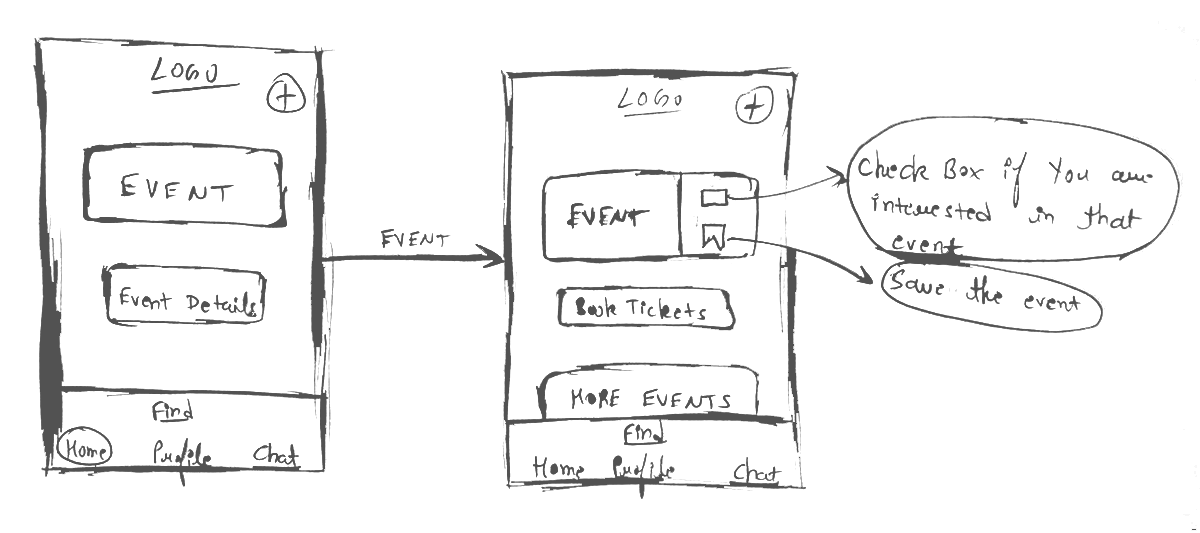 LOGO
+
EVENT
Event Details
Find
Home Profile Chat
EVENT
LOGO
+
EVENT
Book Tickets
MORE EVENTS
Find
Home Profile Chat
Check Box if You are
interested in that
event
Save the event